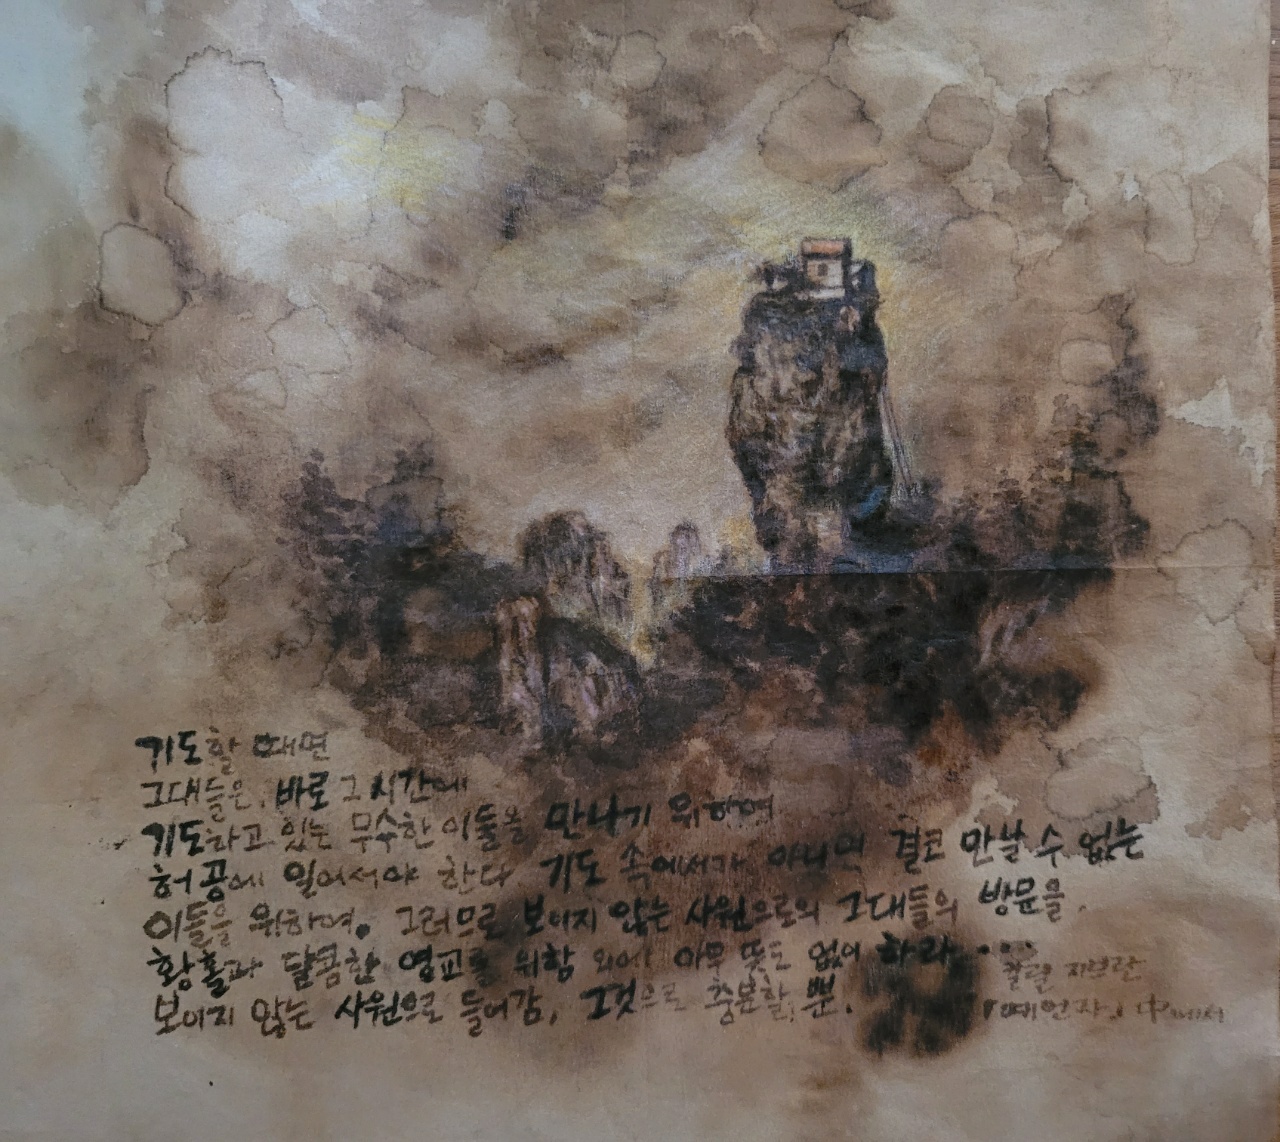 기도할 때면
그대들은, 바로 그 시간에
기도하고 있는 무수한 이들을 만나기 위하며
허공에 일어서야 한다 기도 속에서가 아니면 결코 만날 수 없는
이들을 위하여. 그러므로 보이지 않는 사원으로의 그대들의 방문을.
황홀과 달콤한 영교를 위함 외에 아무 뜻도 없이 하라....
보이지 않는 사원으로 들어감, 그것으로 충분할, 뿐.
칼릴 지브란
「예언자」 中에서